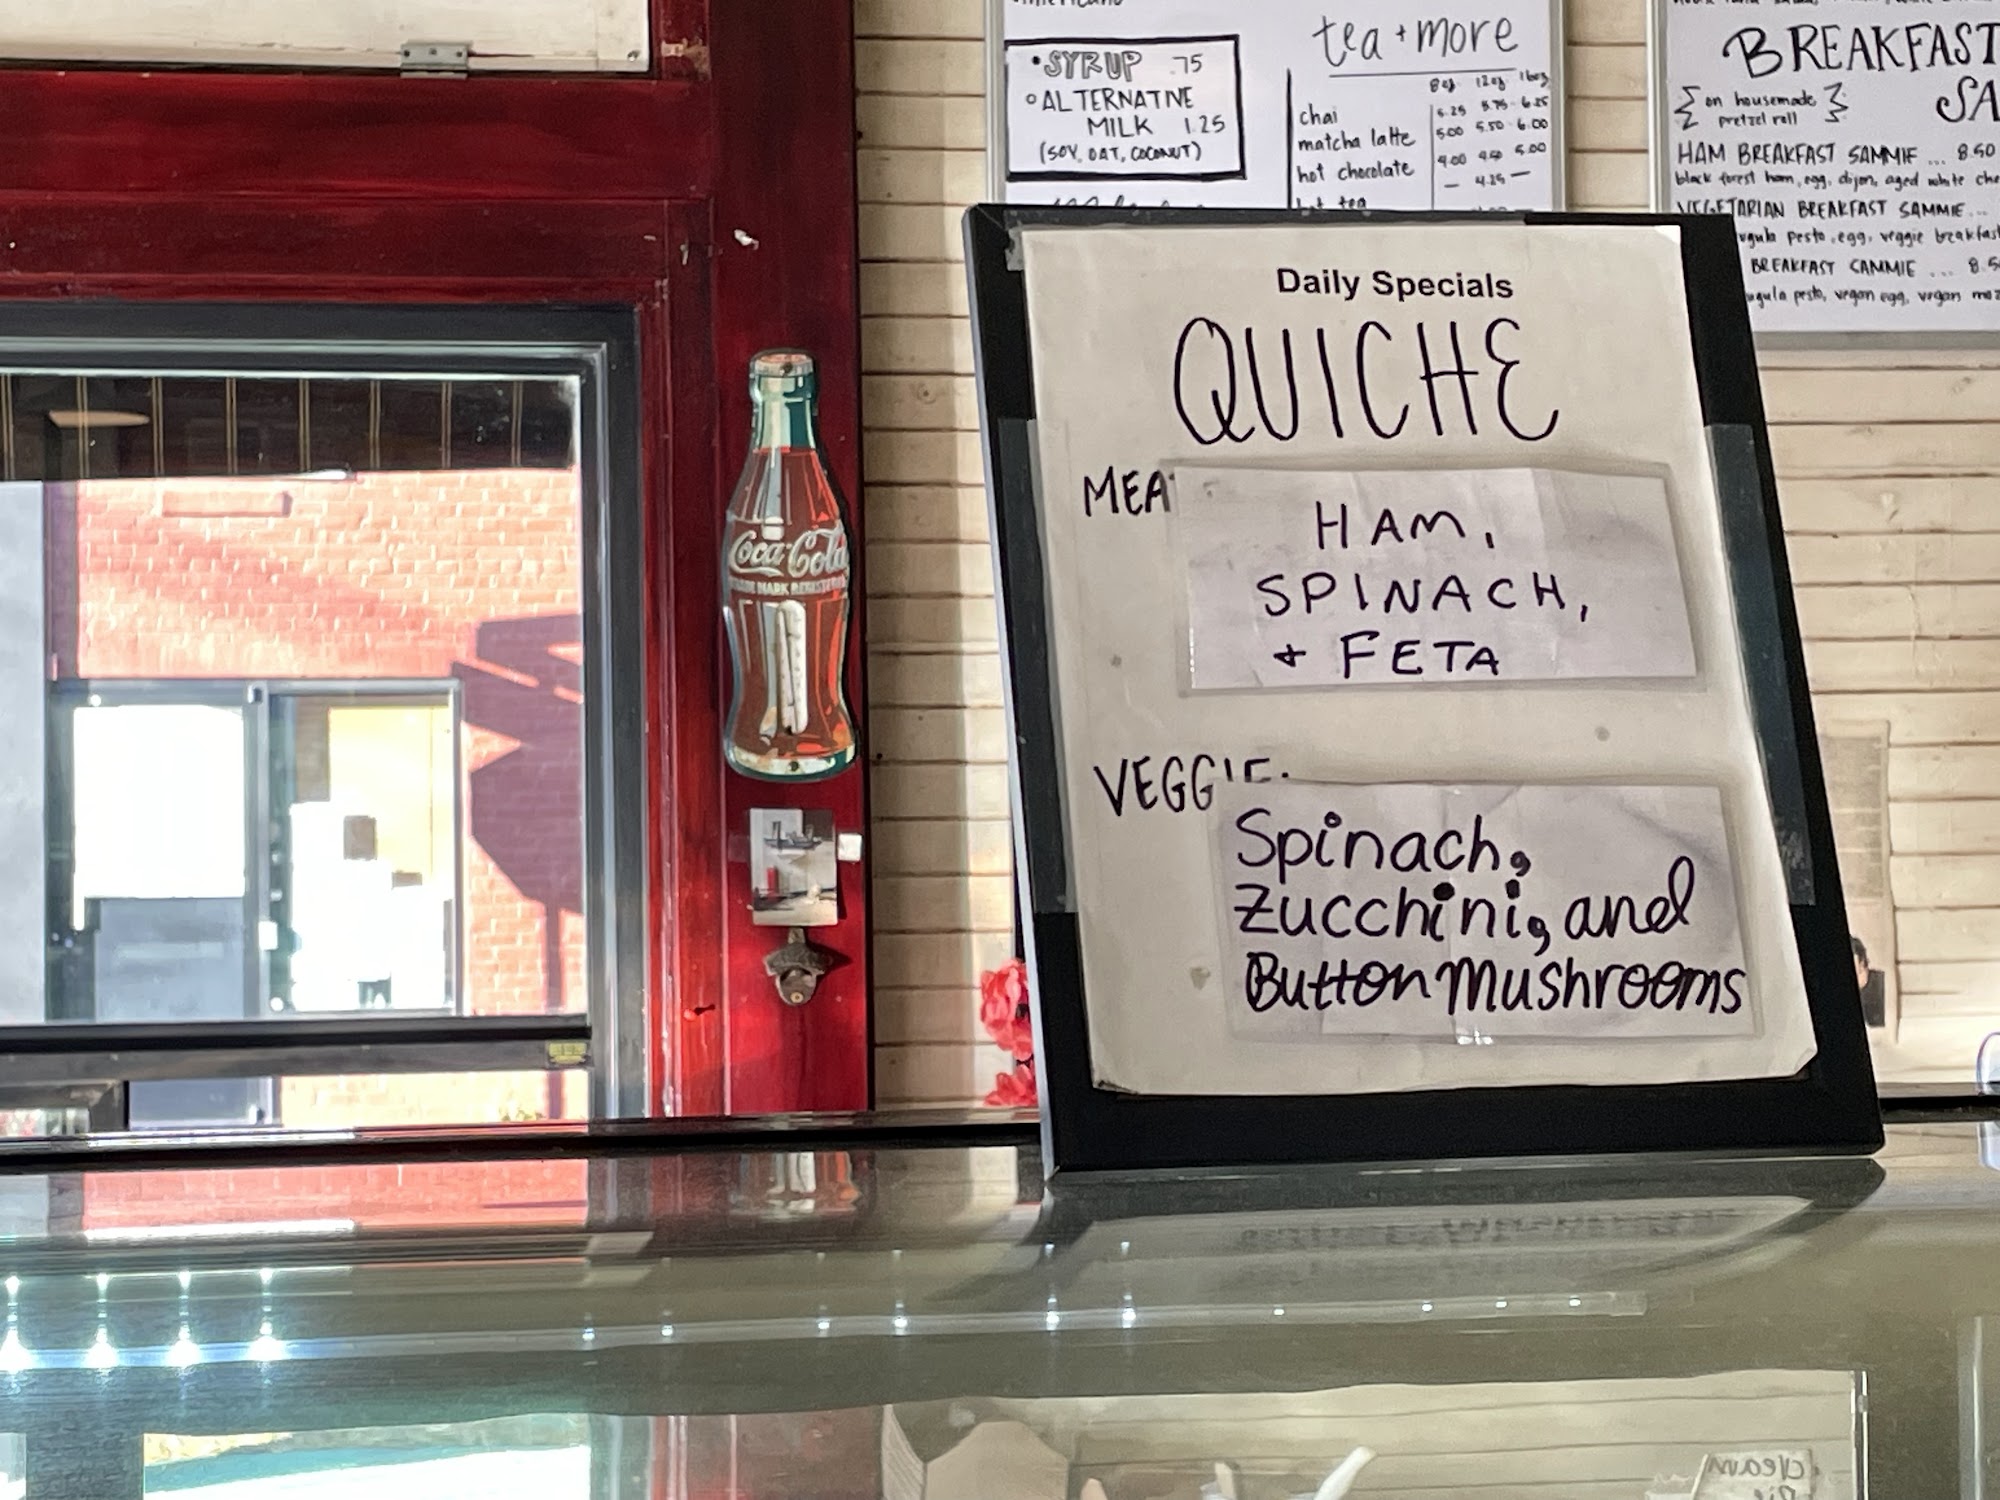 SYRUP .75
ALTERNATIVE
MILK 1.25
(SOY, OAT, COCONUT)
tea + more
8oz 12oz 16oz
chai 5.25 5.75 6.25
matcha latte 5.00 5.50 6.00
hot chocolate 4.00 4.50 5.00
— 4.25 —
hot tea
BREAKFAST
SA
{ on housemade }
pretzel roll
HAM BREAKFAST SAMMIE ... 8.50
black forest ham, egg, dijon, aged white che
VEGETARIAN BREAKFAST SAMMIE...
ugula pesto, egg, veggie breakfas
BREAKFAST SAMMIE ... 8.5
ugula pesto, vegan egg, vegan moz
Coca-Cola
TRADE MARK REGISTERED
Daily Specials
QUICHE
MEA
HAM,
SPINACH,
+ FETA
VEGGIE:
Spinach,
Zucchini, and
Button Mushrooms
cream